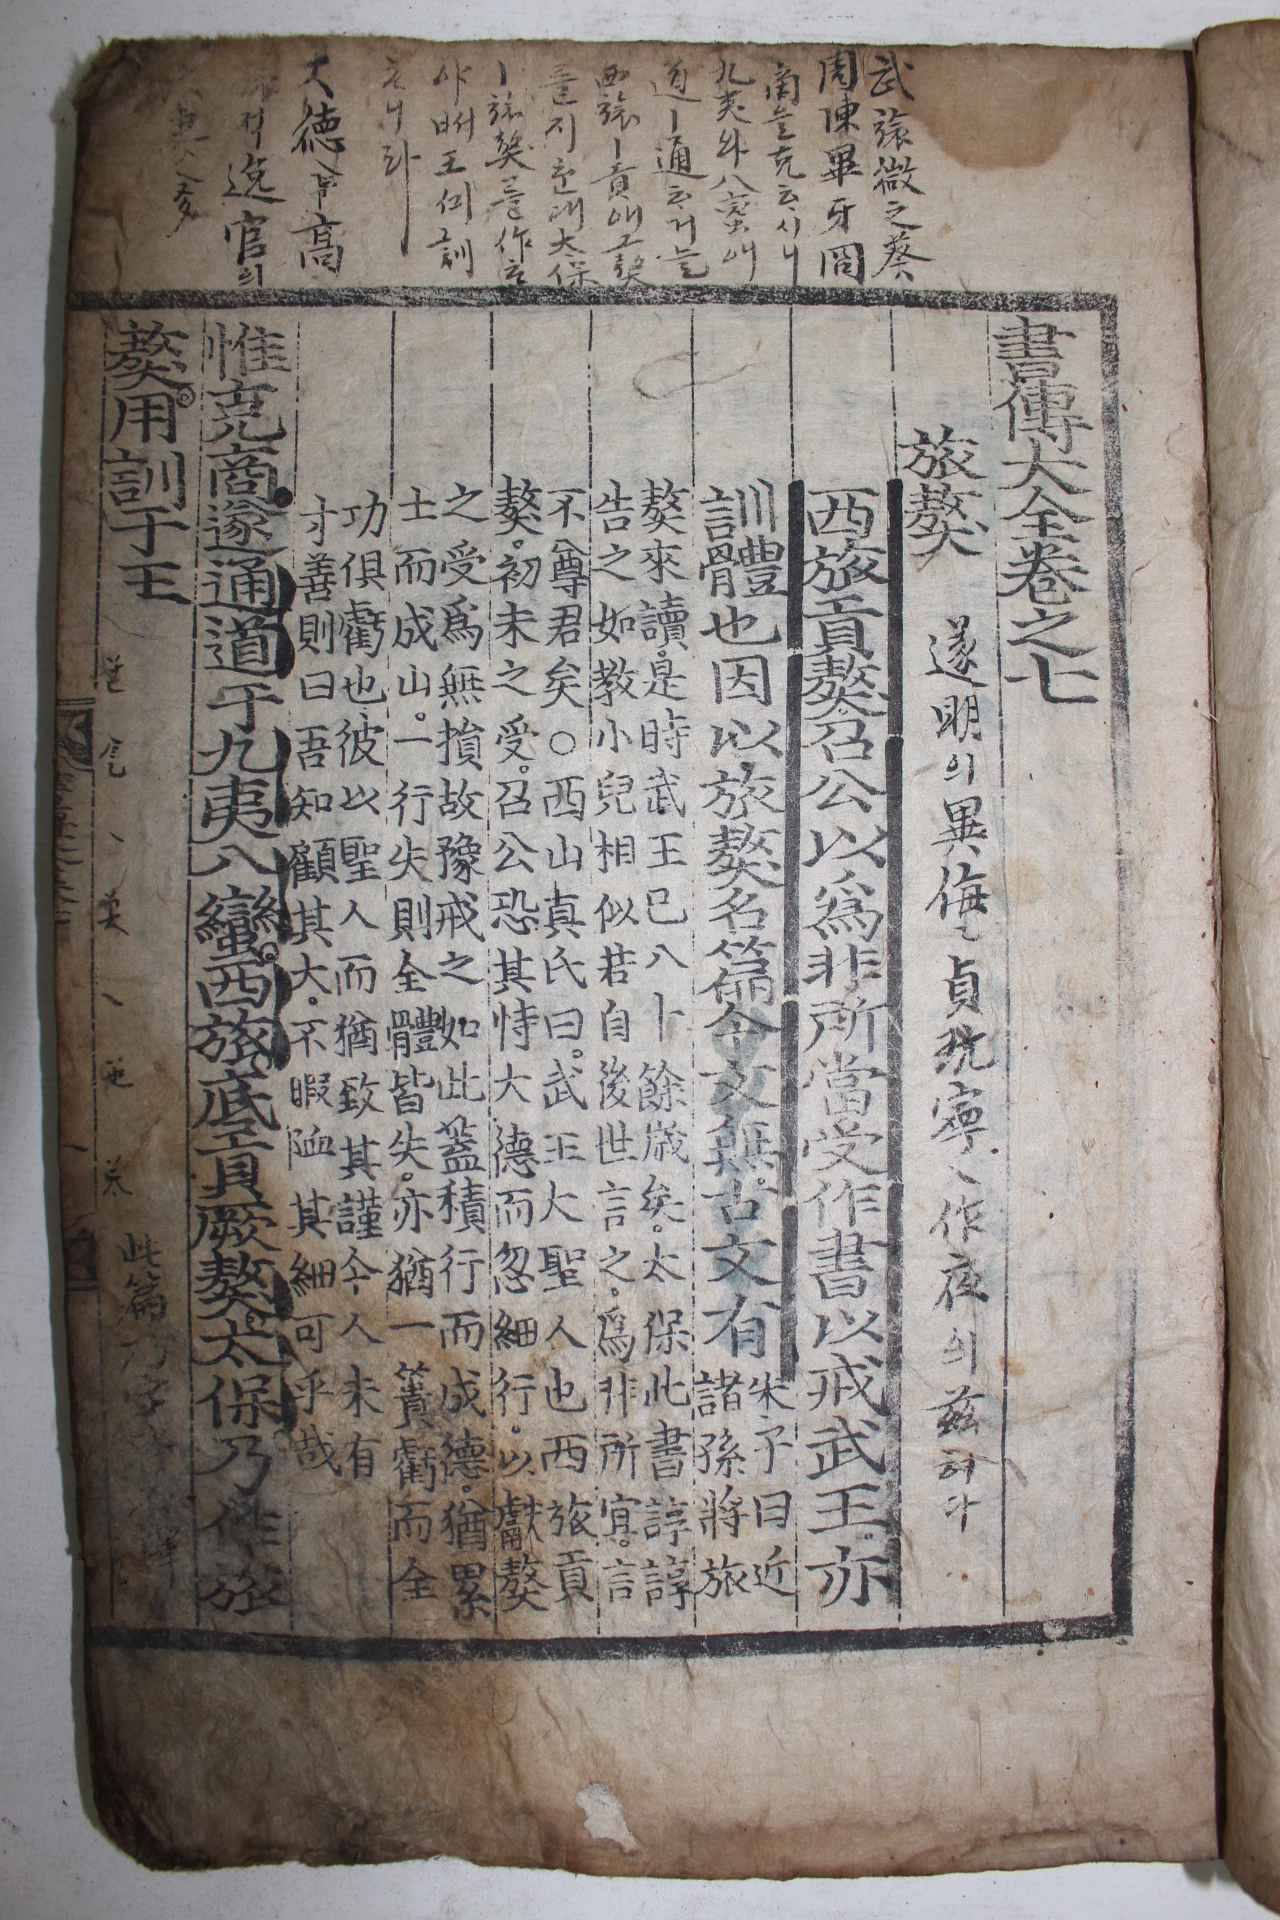 武旅獒微之葵
周陳畢牙冏
商을克하시니
九夷와八蠻애
道ㅣ通커늘
西旅ㅣ貢厥獒
를지은대太保
ㅣ旅獒를作하
야써王의訓
하니라
大德 高
逸官의
書傳大全卷之七
旅獒
遂明의異侮 貞玩寧 作夜의玆하다
西旅貢獒召公以爲非所當受作書以戒武王亦
訓體也因以旅獒名篇今文無古文有
朱子曰近
諸孫將旅
獒來讀是時武王已八十餘歲矣太保此書諄諄
告之如教小兒相似若自後世言之爲非所宜言
不尊君矣○西山真氏曰武王大聖人也西旅貢
獒初未之受召公恐其恃大德而忽細行以獻獒
之受爲無損故豫戒之如此蓋積行而成德猶累
土而成山一行失則全體皆失亦猶一簣虧而全
功俱虧也彼以聖人而猶致其謹今人未有
寸善則曰吾知顧其大不暇恤其細可乎哉
惟克商遂通道于九夷八蠻西旅底貢厥獒太保乃作旅
獒用訓于王
此篇